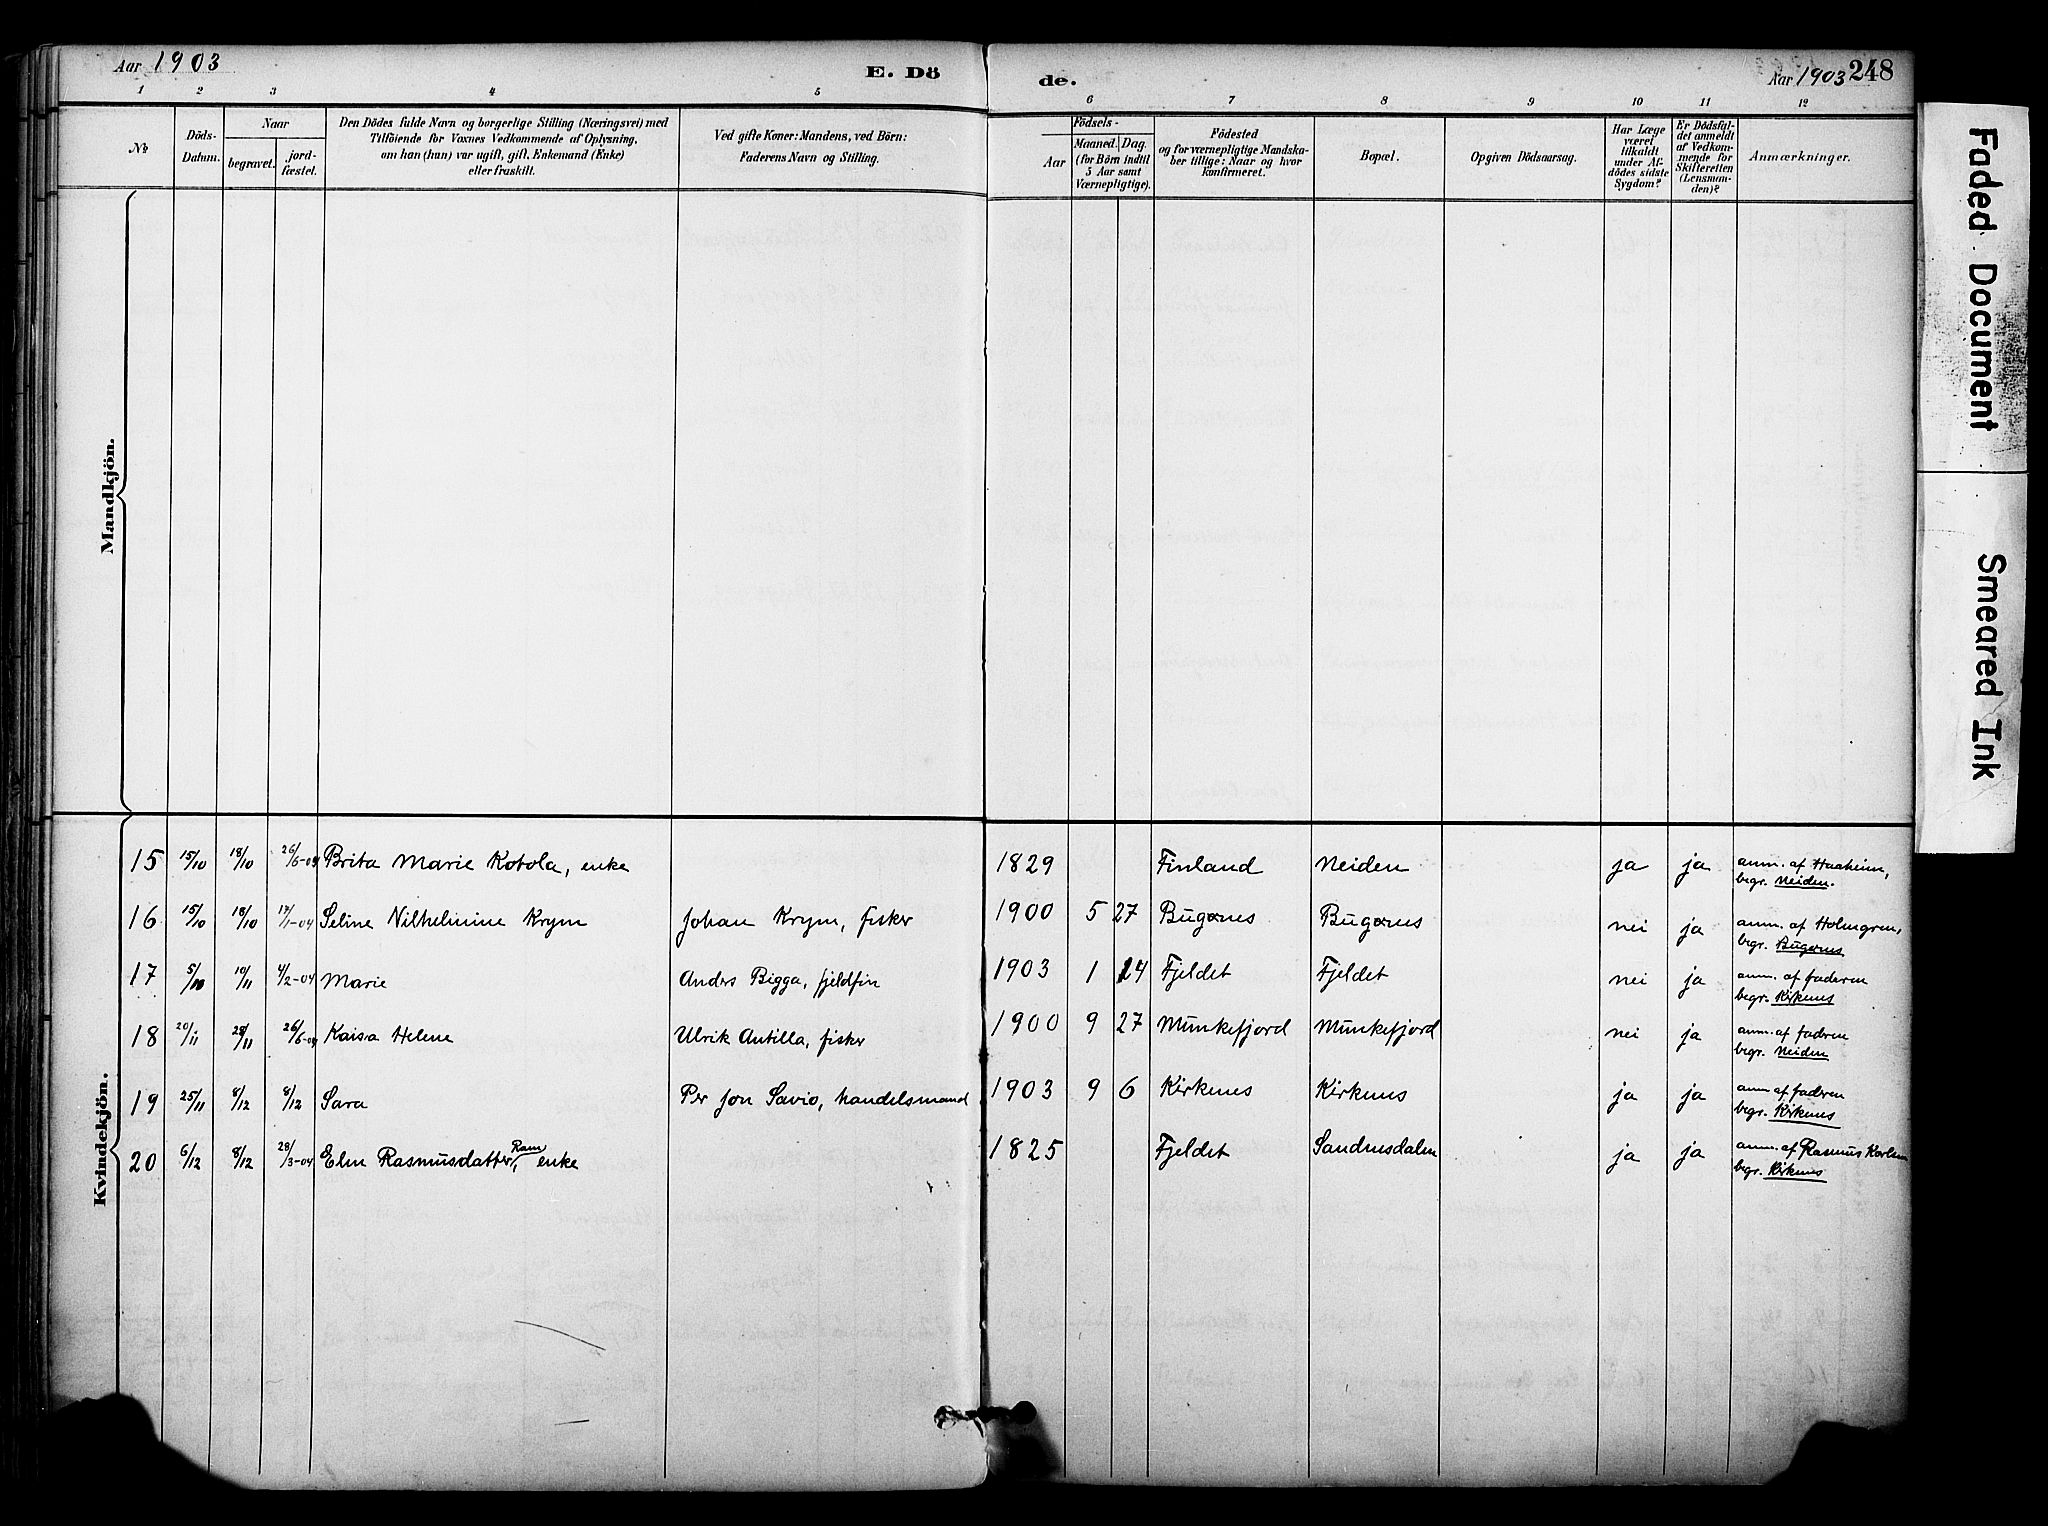 Aar 1903
E. Dö
de.
Aar 1903 248
1 2 3 4 5 6 7 8 9 10 11 12
№
Döds-
Datum.
Naar
begravet.
jord-
fæstet.
Den Dödes fulde Navn og borgerlige Stilling (Næringsvei) med
Tilföiende for Voxnes Vedkommende af Oplysning,
om han (hun) var ugift, gift, Enkemand (Enke)
eller fraskilt.
Ved gifte Koner: Mandens, ved Börn:
Faderens Navn og Stilling.
Födsels-
Aar
Maaned. Dag.
(for Börn indtil
5 Aar samt
Værnepligtige).
Födested
og for værnepligtige Mandska-
ber tillige: Naar og hvor
konfirmeret.
Bopæl.
Opgiven Dödsaarsag.
Har Læge
været
tilkaldt
under Af-
dödes sidste
Sygdom?
Er Dödsfal-
det anmeldt
af Vedkom-
mende for
Skifteretten
(Lensman-
den)?
Anmærkninger.
Mandkjön.
Kvindekjön.
15 15/10 18/10 26/6-04 Brita Marie Kotola, enke 1829 Finland Neiden ja ja anm. af Haaheim,
begr. Neiden.
16 15/10 18/10 17/1-04 Seline Vilhelmine Krym Johan Krym, fisker 1900 5 27 Bugønes Bugønes nei ja anm. af Holmgren,
begr. Bugønes
17 5/10 10/11 4/2-04 Marie Anders Bigga, fjeldfin 1903 1 24 Fjeldet Fjeldet nei ja anm. af faderen
begr. Kirkenes
18 20/11 28/11 26/6-04 Kaisa Helene Ulrik Antilla, fisker 1900 9 27 Munkefjord Munkefjord nei ja anm. af fadren
begr. Neiden
19 25/11 8/12 8/12 Sara Per Jon Savio, handelsmand 1903 9 6 Kirkenes Kirkenes ja ja anm af faderen
begr. Kirkenes
20 6/12 8/12 28/3-04 Elen Rasmusdatter, Ram enke 1825 Fjeldet Sandnesdalen ja ja anm. af Rasmus Karlsen
begr. Kirkenes
Faded Document
Smeared Ink